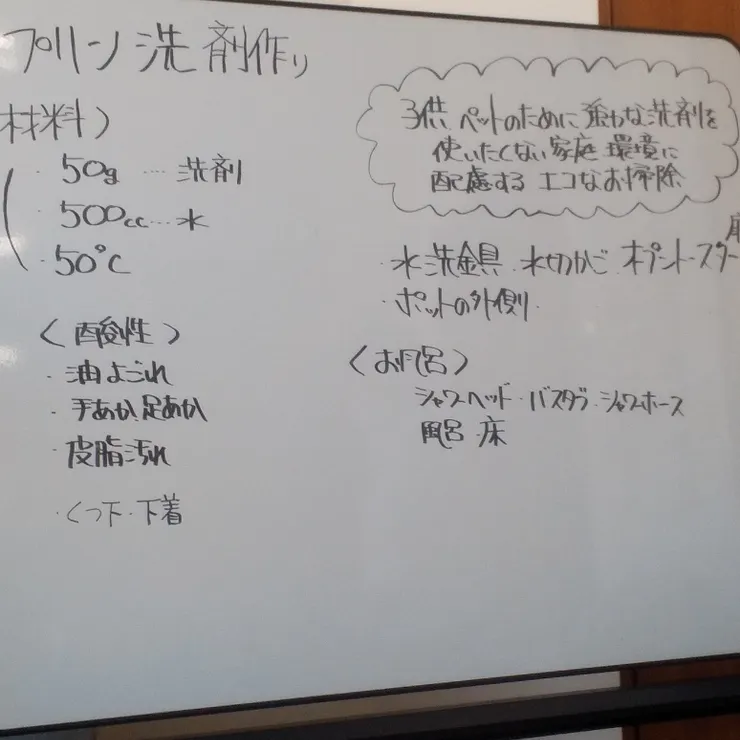 プリン洗剤作り
材料)
・50g … 洗剤
・500cc … 水
・50℃
〈酸性〉
・油よごれ
・手あか、足あか
・皮脂汚れ
・くつ下・下着
子供、ペットのために強力な洗剤を
使いたくない家庭 環境に
配慮する エコなお掃除
・水洗金具、水切かご
・ポットの外側
〈お風呂〉
シャワーヘッド・バスタブ・シャワーホース
風呂 床